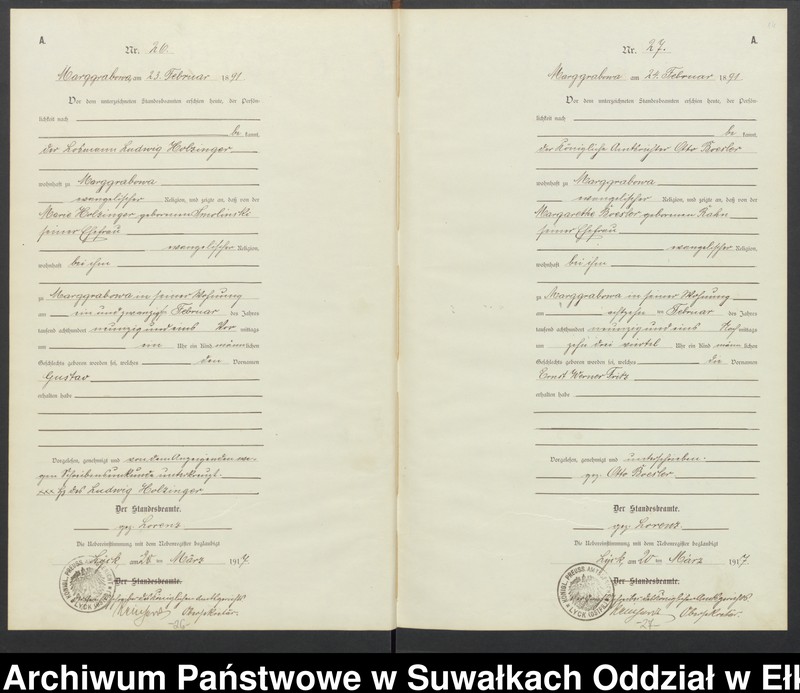 A.
Nr. 26.
Marggrabowa, am 23. Februar 1891
Vor dem unterzeichneten Standesbeamten erschien heute, der Persön-
lichkeit nach
be kannt,
der Lohmann Ludwig Holzinger
wohnhaft zu Marggrabowa
evangelischer Religion, und zeigte an, daß von der
Marie Holzinger geborenen Smolinski
seiner Ehefrau
evangelischer Religion,
wohnhaft bei ihm
zu Marggrabowa in seiner Wohnung
am ein und zwanzigsten Februar des Jahres
tausend achthundert neunzig und eins Vor mittags
um ein Uhr ein Kind männlichen
Geschlechts geboren worden sei, welches den Vornamen
Gustav
erhalten habe
Vorgelesen, genehmigt und von dem Anzeigenden we-
gen Schreibensunkunde unterkreuzt
xxx Hz des Ludwig Holzinger
Der Standesbeamte.
gez. Lorenz
Die Uebereinstimmung mit dem Nebenregister beglaubigt
Lyck, am 20 ten März 1917
Der Standesbeamte.
des Königlichen Amtsgerichts
Obersekretär.
-26-
A.
Nr. 27.
Marggrabowa am 24. Februar 1891
Vor dem unterzeichneten Standesbeamten erschien heute, der Persön-
lichkeit nach
be kannt,
der Königliche Amtsrichter Otto Boesler
wohnhaft zu Marggrabowa
evangelischer Religion, und zeigte an, daß von der
Margarethe Boesler geborenen Hahn
seiner Ehefrau
evangelischer Religion,
wohnhaft bei ihm
zu Marggrabowa in seiner Wohnung
am Februar des Jahres
tausend achthundert neunzig und eins Nach mittags
um zehn drei viertel Uhr ein Kind männlichen
Geschlechts geboren worden sei, welches die Vornamen
Ernst Werner Fritz
erhalten habe
Vorgelesen, genehmigt und unterschrieben.
gez. Otto Boesler
Der Standesbeamte.
gez. Lorenz
Die Uebereinstimmung mit dem Nebenregister beglaubigt
Lyck, am 20 ten März 1917
Der Standesbeamte.
des Königlichen Amtsgerichts
Obersekretär.
-27-
Archiwum Państwowe w Suwałkach Oddział w Ełk